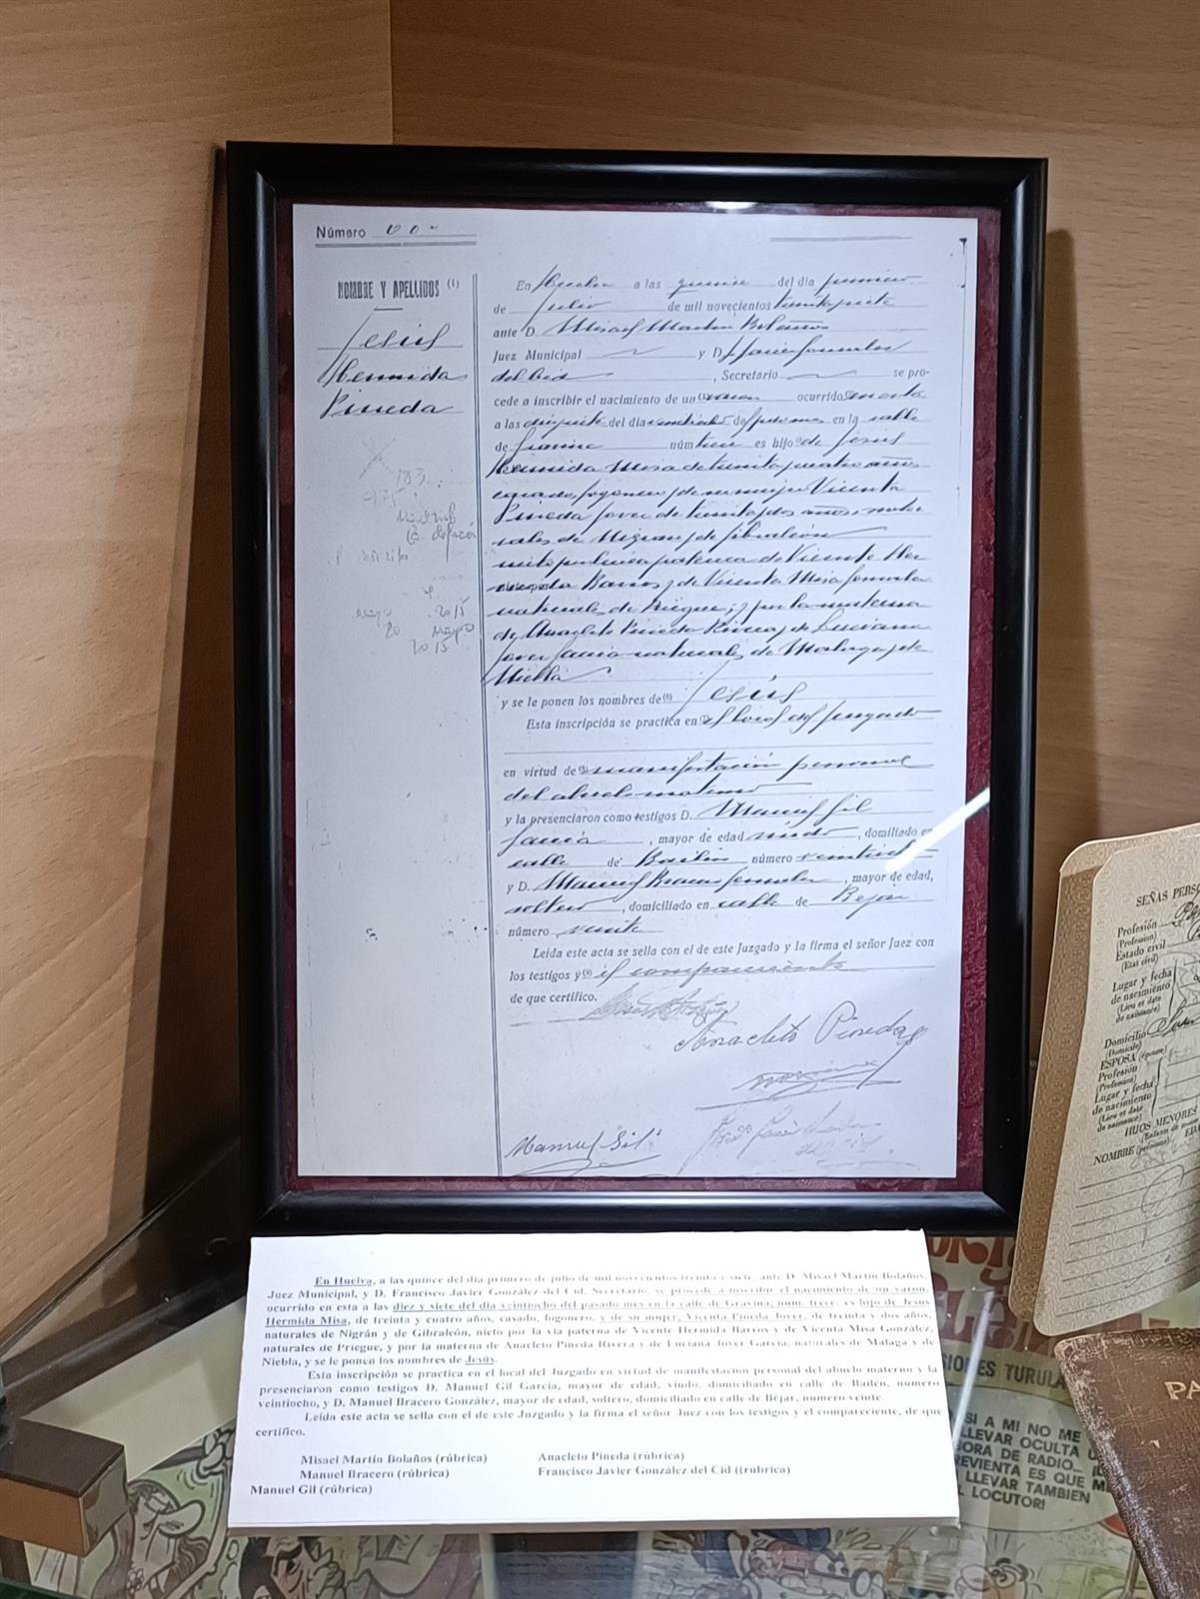 Número
NOMBRE Y APELLIDOS (1)
Jesús
Hermida
Pineda
En Huelva a las quince del día primero
de Julio de mil novecientos treinta y siete
ante D. Misael Martín Bolaños
Juez Municipal y D. F. Javier González
del Cid , Secretario se pro-
cede a inscribir el nacimiento de un varón ocurrido
a las diez y siete del día veintiocho de en la calle
de Gravina núm trece es hijo de Jesús
Hermida Misa de treinta y cuatro años
casado, fogonero y de su mujer Vicenta
Pineda Jover de treinta y dos años, natu
rales de Nigrán y de Gibraleón
nieto por línea paterna de Vicente Her
mida Barros y de Vicenta Misa González
naturales de Priegue; y por la materna
de Anacleto Pineda Rivera y de Luciana
Jover García naturales de Malaga y de
Niebla
y se le ponen los nombres de Jesús
Esta inscripción se practica en el local del Juzgado
en virtud de manifestación personal
del abuelo materno
y la presenciaron como testigos D. Manuel Gil
García , mayor de edad viudo , domiliado en
calle de Bailén número veintiocho
y D. Manuel Bracero González , mayor de edad,
soltero , domiciliado en calle de Bejar
número veinte
Leída este acta se sella con el de este Juzgado y la firma el señor Juez con
los testigos y el compareciente
de que certifico.
Anacleto Pineda
Manuel Gil
En Huelva, a las quince del día primero de julio de mil novecientos treinta y siete, ante D. Misael Martín Bolaños,
Juez Municipal, y D. Francisco Javier González del Cid, Secretario, se procede a inscribir el nacimiento de un varón,
ocurrido en esta a las diez y siete del día veintiocho del pasado mes en la calle de Gravina, num. trece, es hijo de Jesús
Hermida Misa, de treinta y cuatro años, casado, fogonero, y de su mujer, Vicenta Pineda Jover, de treinta y dos años,
naturales de Nigrán y de Gibraleón, nieto por la vía paterna de Vicente Hermida Barros y de Vicenta Misa González,
naturales de Priegue, y por la materna de Anacleto Pineda Rivera y de Luciana Jover García, naturales de Málaga y de
Niebla, y se le ponen los nombres de Jesús.
Esta inscripción se practica en el local del Juzgado en virtud de manifestación personal del abuelo materno y la
presenciaron como testigos D. Manuel Gil García, mayor de edad, viudo, domiciliado en calle de Bailén, numero
veintiocho, y D. Manuel Bracero González, mayor de edad, soltero, domiciliado en calle de Béjar, numero veinte.
Leída este acta se sella con el de este Juzgado y la firma el señor Juez con los testigos y el compareciente, de que
certifico.
Misael Martín Bolaños (rúbrica) Anacleto Pineda (rúbrica)
Manuel Bracero (rúbrica) Francisco Javier González del Cid ((rúbrica)
Manuel Gil (rúbrica)
SEÑAS PERSO
Profesión
(Profession)
Estado civil
(Etat civil)
Lugar y fecha
de nacimiento
(Lieu et date
de naissance)
Domicilio
(Domicile)
ESPOSA (épouse)
Profesión
(Profession)
Lugar y fecha
de nacimiento
(Lieu et date
de naissance)
HIJOS MENORES
NOMBRE (prénoms)
PA
IONES TURULA
SI A MI NO ME
LLEVAR OCULTA
ORA DE RADIO...
REVIENTA ES QUE
LLEVAR TAMBIEN
LOCUTOR!